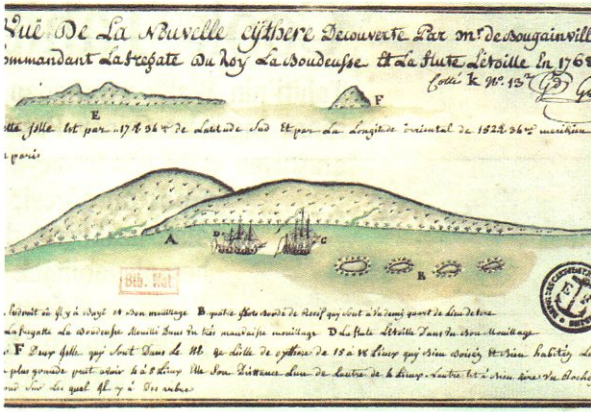 Vuë De La Nouvelle cythere Decouverte Par mr. de Bougainvill
ommandant La fregate Du Roy La Boudeusse Et La flute Letoille En 1768
Cotté k No. 13
E
F
jsle Est par 17d 36m de Latitude Sud Et par La Longitude oriental de 152d 36m meridien
paris
A
D
C
B
Bib. Nat
Endroit où jl y à Bayë et Bon mouillage B quatre jslots Bordé de Recif qui sont à un demi quart de Lieu de terre
La fregatte La Boudeusse Mouillé Dans un très mauvaise mouillage D La flute Letoille Dans un Bon Mouillage
F Deux jsles qui sont Dans Le de Lille de cythere de 15 a 18 Lieux qui sont Bien Boisëz et Bien habitëz
plus grande peut avoir 4 à 5 Lieux Elle son Distance Lune de Lautre de 4 Lieux Lautre
Sur Les quel jl y à Des arbre